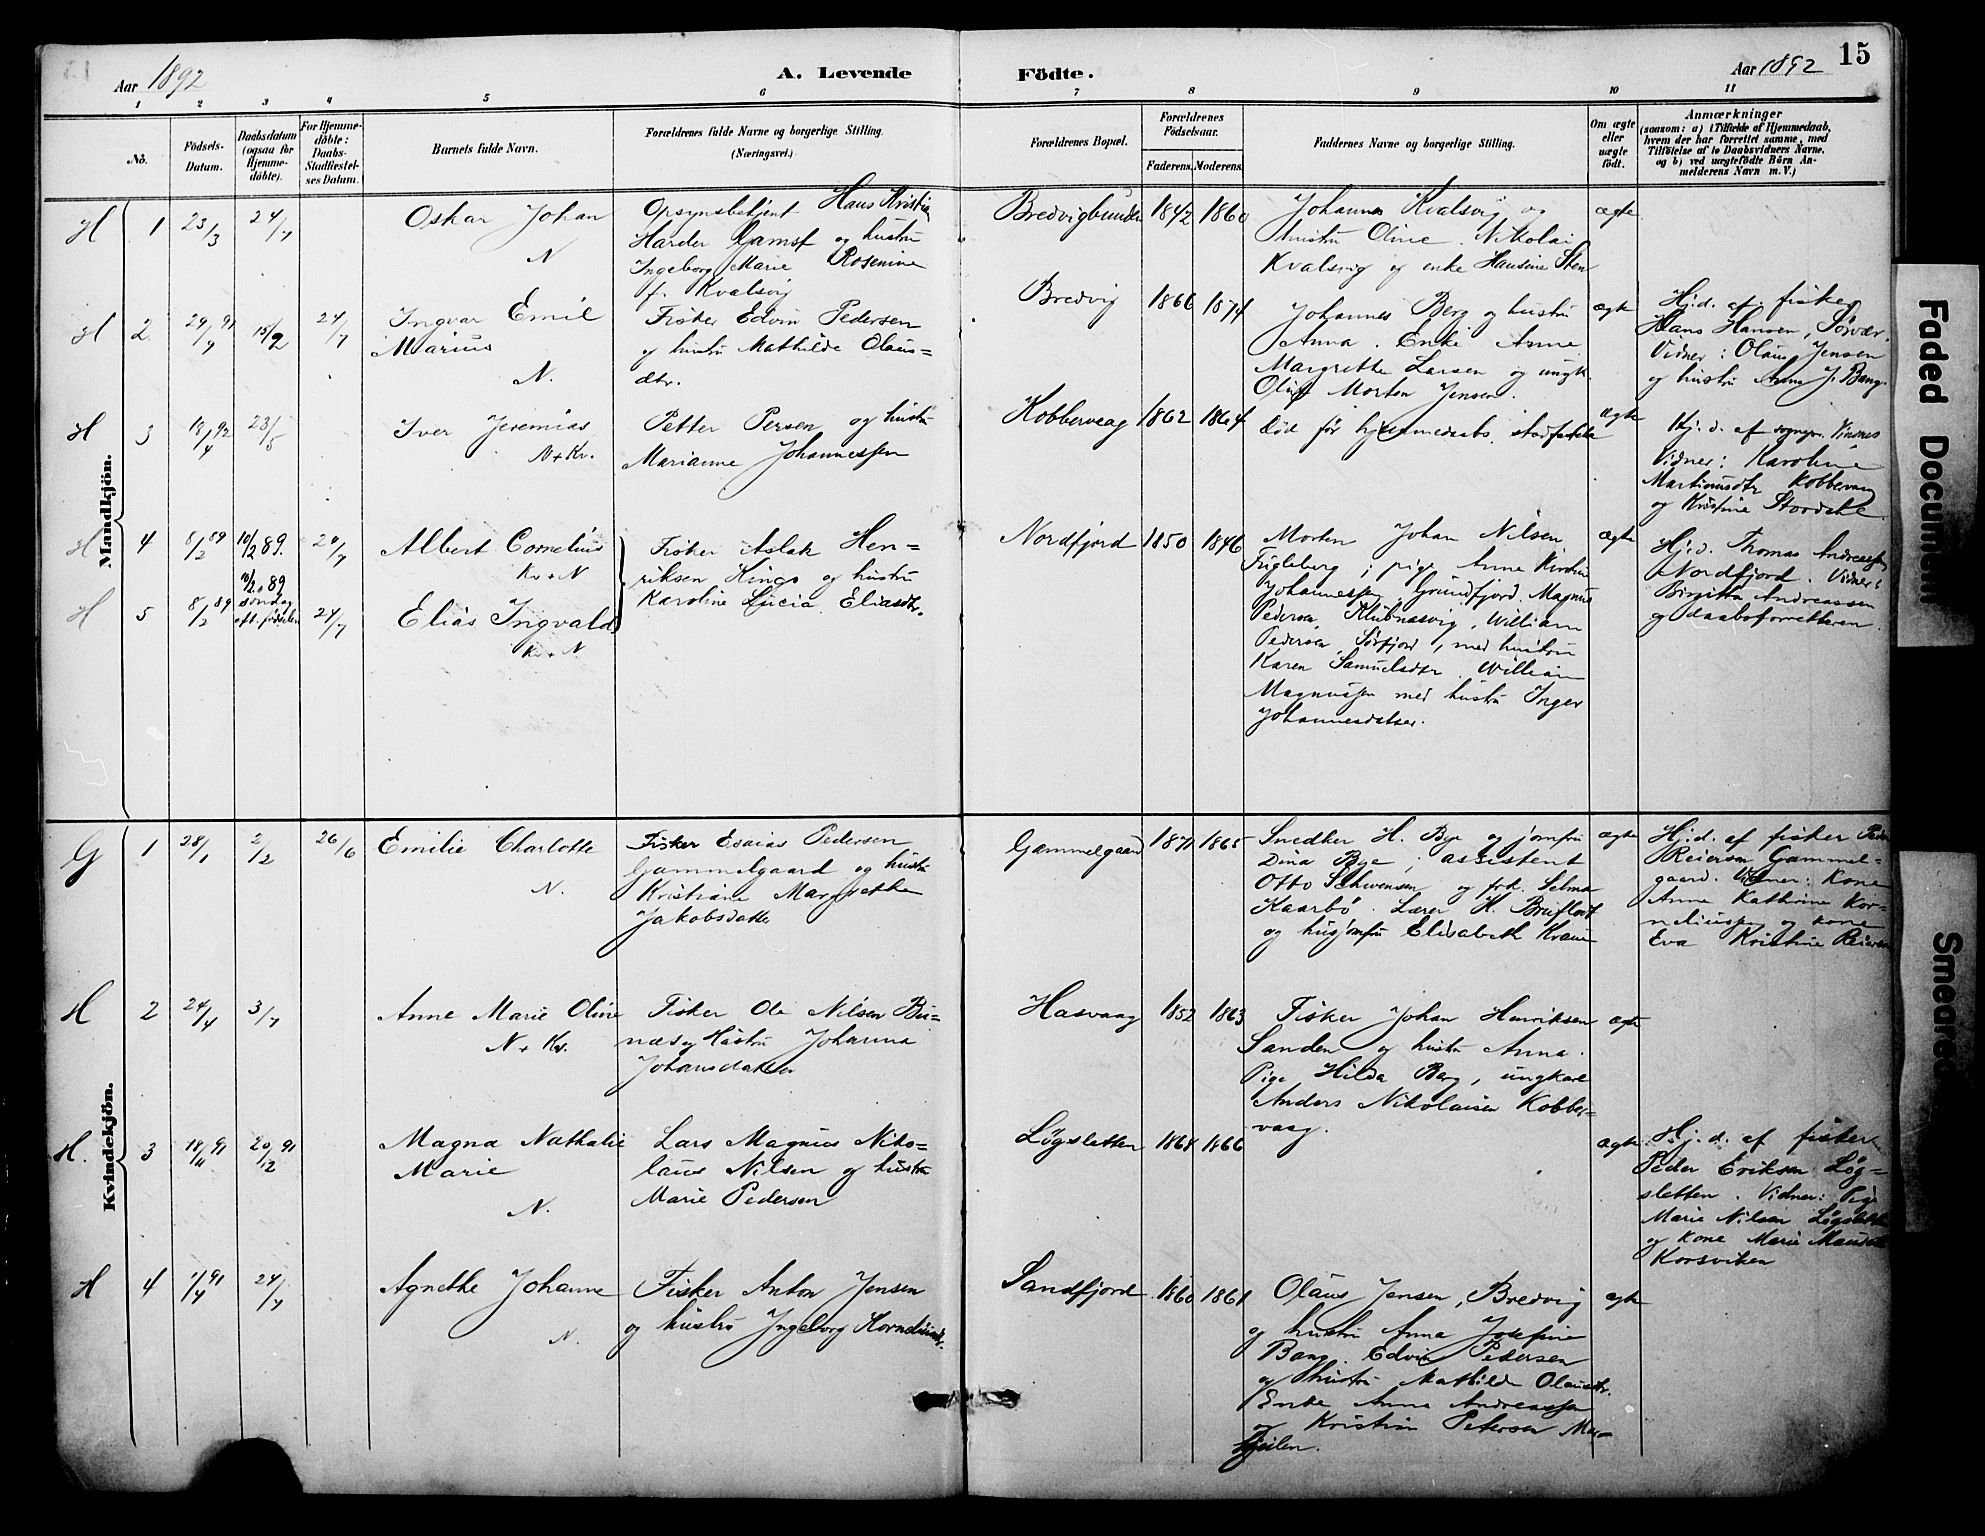 15
Aar 1892
A. Levende Födte.
Aar 1892
1 2 3 4 5 6 7 8 9 10 11
No.
Födsels-
Datum.
Daabsdatum
(ogsaa for
Hjemme-
döbte).
For Hjemme-
döbte:
Daabs-
Stadfæstel-
ses Datum.
Barnets fulde Navn.
Forældrenes fulde Navne og borgerlige Stilling.
(Næringsvei.)
Forældrenes Bopæl.
Forældrenes
Födselsaar.
Faderens. Moderens.
Faddernes Navne og borgerlige Stilling.
Om ægte
eller
uægte
födt.
Anmærkninger
(saasom: a) i Tilfælde af Hjemmedaab,
hvem der har forrettet samme, med
Tilföielse af to Daabsvidners Navne,
og b) ved uægtefödte Börn An-
melderens Navn m. V.)
Mandkjön.
H 1 23/3 24/7
Oskar Johan
N
Opsynsbetjent Hans Kristian
Harder Gamst og hustru
Ingeborg Marie Rosenine
f. Kvalsvig
Bredvigbunden 1842 1860
Johannes Kvalsvig og
hustru Oline. Nikolai
Kvalsvig og enke Hansine Sten
ægte
H 2 29/9 91 15/2 24/7
Ingvar Emil
Marius
N.
Fisker Edvin Pedersen
og hustru Mathilde Olaus=
dtr.
Bredvig 1866 1874
Johannes Berg og hustru
Anna. Enke Anne
Margrethe Larsen og ungk.
Oluf Morten Jensen.
ægte
Hj.d. af fisker
Hans Hansen, Sørvær.
Vidner: Olaus Jensen
og hustru Anna J. Bang.
H 3 19/4 92 23/5
Iver Jeremias
N+Kv.
Petter Persen og hustru
Marianne Johannessen
Kobbervaag 1862 1864
Død før hjemmedaabs. stadfæstelse
ægte
Hj.d. af sogn
Vidner: Karoline
Martinusdtr Kobbervaag
og Kristine
H 4 8/2 89 10/2 89. 24/7
Albert Cornelius
Kv+N
Fisker Aslak Hen=
riksen Kings og hustru
Karoline Lucia Eliasdtr.
Nordfjord 1850 1846
Morten Johan Nilsen
Fugleberg; pige Anne Kirstine
Johannessen, Grundfjord, Magnus
Pedersen, Klubnæsvig, William
Pedersen, Sørfjord, med hustru
Karen Samuelsdtr. William
Magnussen med hustru Inger
Johannesdatter.
ægte
Hj.d. Thomas Andreassen
Nordfjord. Vidner:
Birgitta Andreassen
og daabsforretteren.
H 5 8/2 89 10/2 89
søndag
eft. fødselen 24/7
Elias Ingvald
Kv+N
Kvindekjön.
G 1 28/1 2/2 26/6
Emilie Charlotte
N.
Fisker Esaias Pedersen
Gammelgaard og hustru
Kristiane Margrethe
Jakobsdatter
Gammelgaard 1871 1865
Snedker H. Bye og jomfru
Dina Bye; assistent
Otto Schwensen og frk. Selma
Kaarbö. Lærer H. Breiflodt
og husjomfru Elisabeth Krane
ægte
Hj.d. af fisker Peder
Reiersen Gammel-
gaard. Vidner: Kone
Anne Kathrine Kor-
neliussen og kone
Eva Kristine Reiersen
H 2 24/4 3/7
Anne Marie Oline
N+Kv.
Fisker Ole Nilsen Bu-
næs og Hustru Johanna
Johansdatter
Hasvaag 1852 1863
Fisker Johan Henriksen
Sanden og hustru Anna.
Pige Hilda Berg, ungkarl
Anders Nikolaisen Kobber-
vaag.
ægte
H. 3 18/11 91 20/12 91
Magna Nathalie
Marie
N.
Lars Magnus Niko-
laus Nilsen og hustru
Marie Pedersen
Løgsletten 1864 1866
ægte
Hj.d. af fisker
Peder Eriksen Løg-
sletten. Vidner: Pige
Marie Nilsen Løgsletten
og kone Marie
Korsviken
H 4 1/4 91 24/7
Agnethe Johanne
N.
Fisker Anton Jensen
og hustru Ingeborg Korneliusdtr.
Sandfjord 1860 1861
Olaus Jensen, Bredvig
og hustru Anna Josefine
Bang. Edvin Pedersen
og hustru Mathilde Olausdtr.
Enke Anna Andreassen
og Kristian Petersen
ægte
Faded Document
Smeared